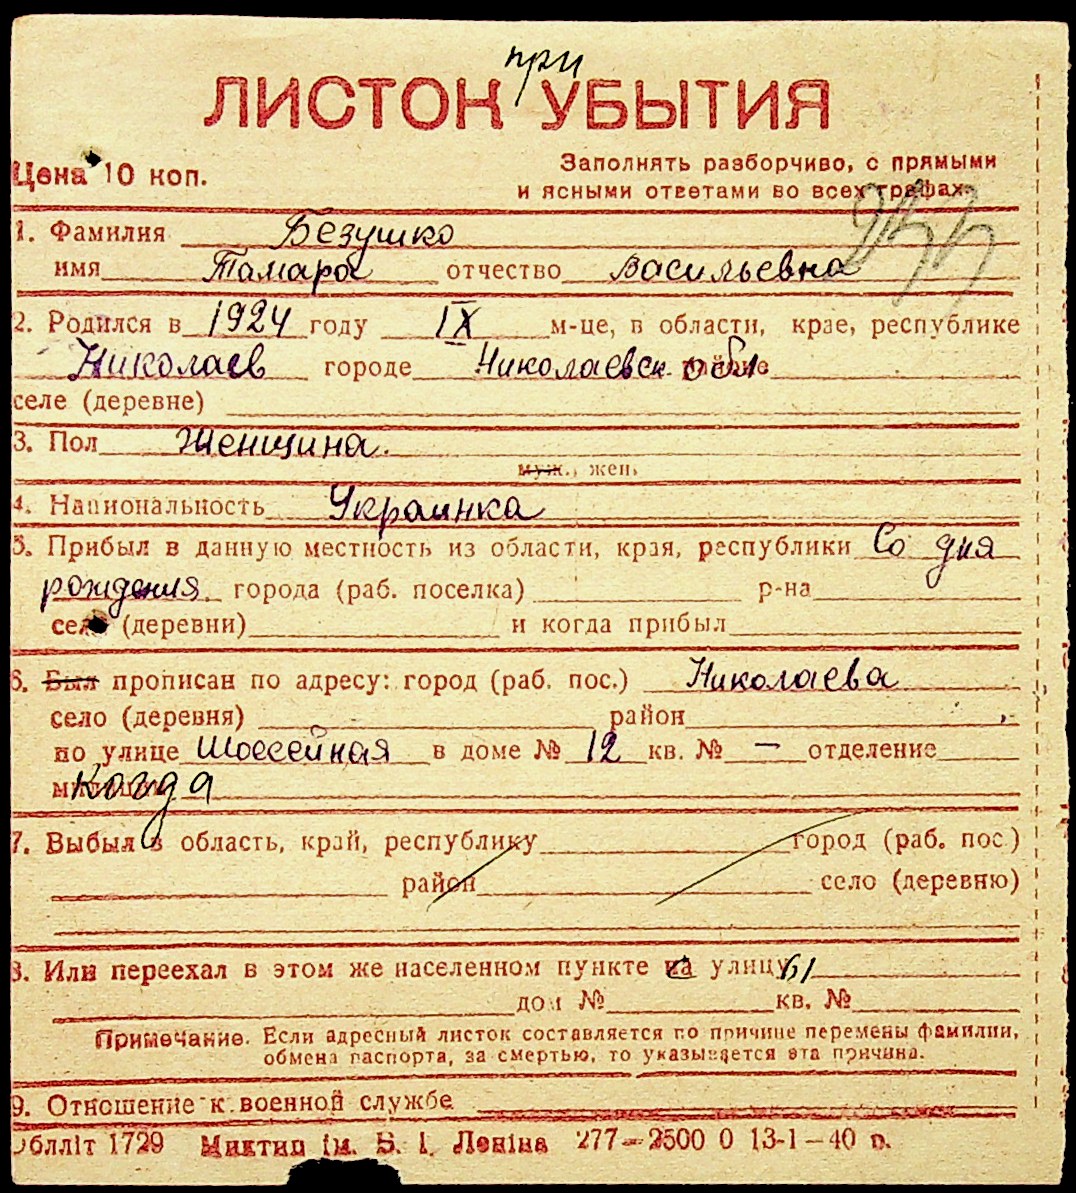 при
ЛИСТОК УБЫТИЯ
Цена 10 коп.
Заполнять разборчиво, с прямыми
и ясными ответами во всех графах.
1. Фамилия Безушко
имя Тамара отчество Васильевна
2. Родился в 1924 году IX м-це, в области, крае, республике
Николаев городе Николаевск. обл.
селе (деревне)
3. Пол Женщина.
муж., жен.
4. Национальность Украинка
5. Прибыл в данную местность из области, края, республики Со дня
рождения. города (раб. поселка) р-на
села (деревни) и когда прибыл
6. Был прописан по адресу: город (раб. пос.) Николаева
село (деревня) район
по улице Шоссейная в доме № 12 кв. № — отделение
милиции когда
7. Выбыл в область, край, республику город (раб. пос.)
район село (деревню)
8. Или переехал в этом же населенном пункте на улицу
дом № кв. №
Примечание. Если адресный листок составляется по причине перемены фамилии,
обмена паспорта, за смертью, то указывается эта причина.
9. Отношение к военной службе
Облліт 1729 Миктип ім. В. І. Леніна 277—2500 0 13-1—40 р.